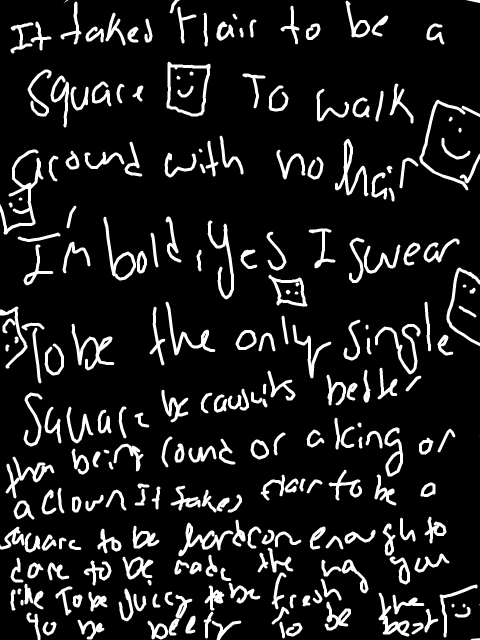 It takes Flair to be a
square To walk
around with no hair
I'm bold, yes I swear
To be the only single
Square becausits better
than being round or a king or
a clown It takes flair to be a
square to be hardcore enough to
dare to be made the way you
like To be Juccy to be fresh
to be the best